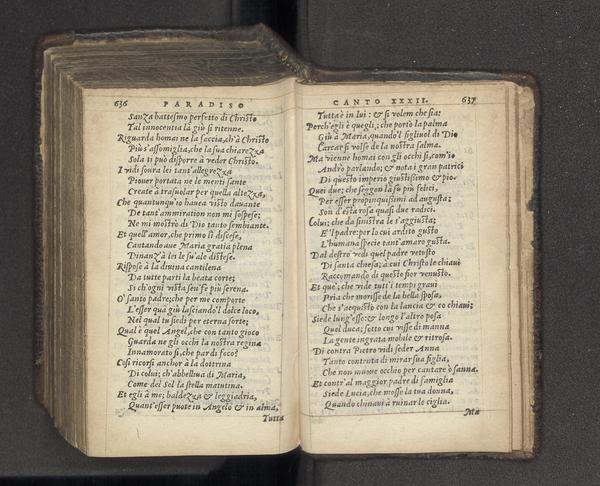 636 PARADISO
Sanza battesmo perfetto di Christo
Tal innocentia là giù si ritenne.
Riguarda homai ne la faccia, ch'à Christo
Più s'assomiglia, che la sua chiarezza
Sola ti può disporre à veder Christo.
I vidi soura lei tant'allegrezza
Piouer portata ne le menti sante
Create à trasuolar per quella altezza,
Che quantunqu'io hauea visto dauante
De tant'ammiration non mi sospese;
Ne mi mostrò di Dio tanto sembiante.
Et quell'amor, che primo lì discese,
Cantando aue Maria gratia plena
Dinanz'à lei le su'ale distese.
Rispose à la diuina cantilena
Da tutte parti la beata corte;
Si ch'ogni vista sen'fe più serena.
O' santo padre; che per me comporte
L'esser qua giù lasciando'l dolce loco,
Nel qual tu siedi per eterna sorte;
Qual'è quel Angel, che con tanto gioco
Guarda ne gli occhi la nostra regina
Innamorato si, che par di foco?
Così ricorsi anchor à la dottrina
Di colui; ch'abbelliua di Maria,
Come del Sol la stella matutina.
Et egli à me; baldezza & leggiadria,
Quant'esser puote in Angelo & in alma,
Tutta
CANTO XXXII. 637
Tutta è in lui: & si volem che sia:
Perch'egli è quegli; che portò la palma
Giù à Maria, quando'l figliuol di Dio
Carcar si volse de la nostra salma.
Ma vienne homai con gli occhi si, com'io
Andrò parlando; & nota i gran patrici
Di questo imperio giustissimo & pio.
Quei due; che seggon là su più felici,
Per esser propinquissimi ad augusta;
Son d'esta rosa quasi due radici.
Colui; che da sinistra le s'aggiusta;
E'l padre: per lo cui ardito gusto
L'humana specie tant'amaro gusta.
Dal destro vedi quel padre vetusto
Di santa chiesa; à cui Christo le chiaui
Raccomandò di questo fior venusto.
Et que'; che vide tutt'i tempi graui
Pria che morisse de la bella sposa,
Che s'acquistò con la lancia & co chiaui;
Siede lung'esso: & lungo l'altro posa
Quel duca; sotto cui visse di manna
La gente ingrata mobile & ritrosa.
Di contra Pietro vidi seder Anna
Tanto contenta di mirar sua figlia,
Che non muoue occhio per cantare osanna.
Et contr'al maggior padre di famiglia
Siede Lucia, che mosse la tua donna,
Quando chinaui à ruinar le ciglia.
Ma